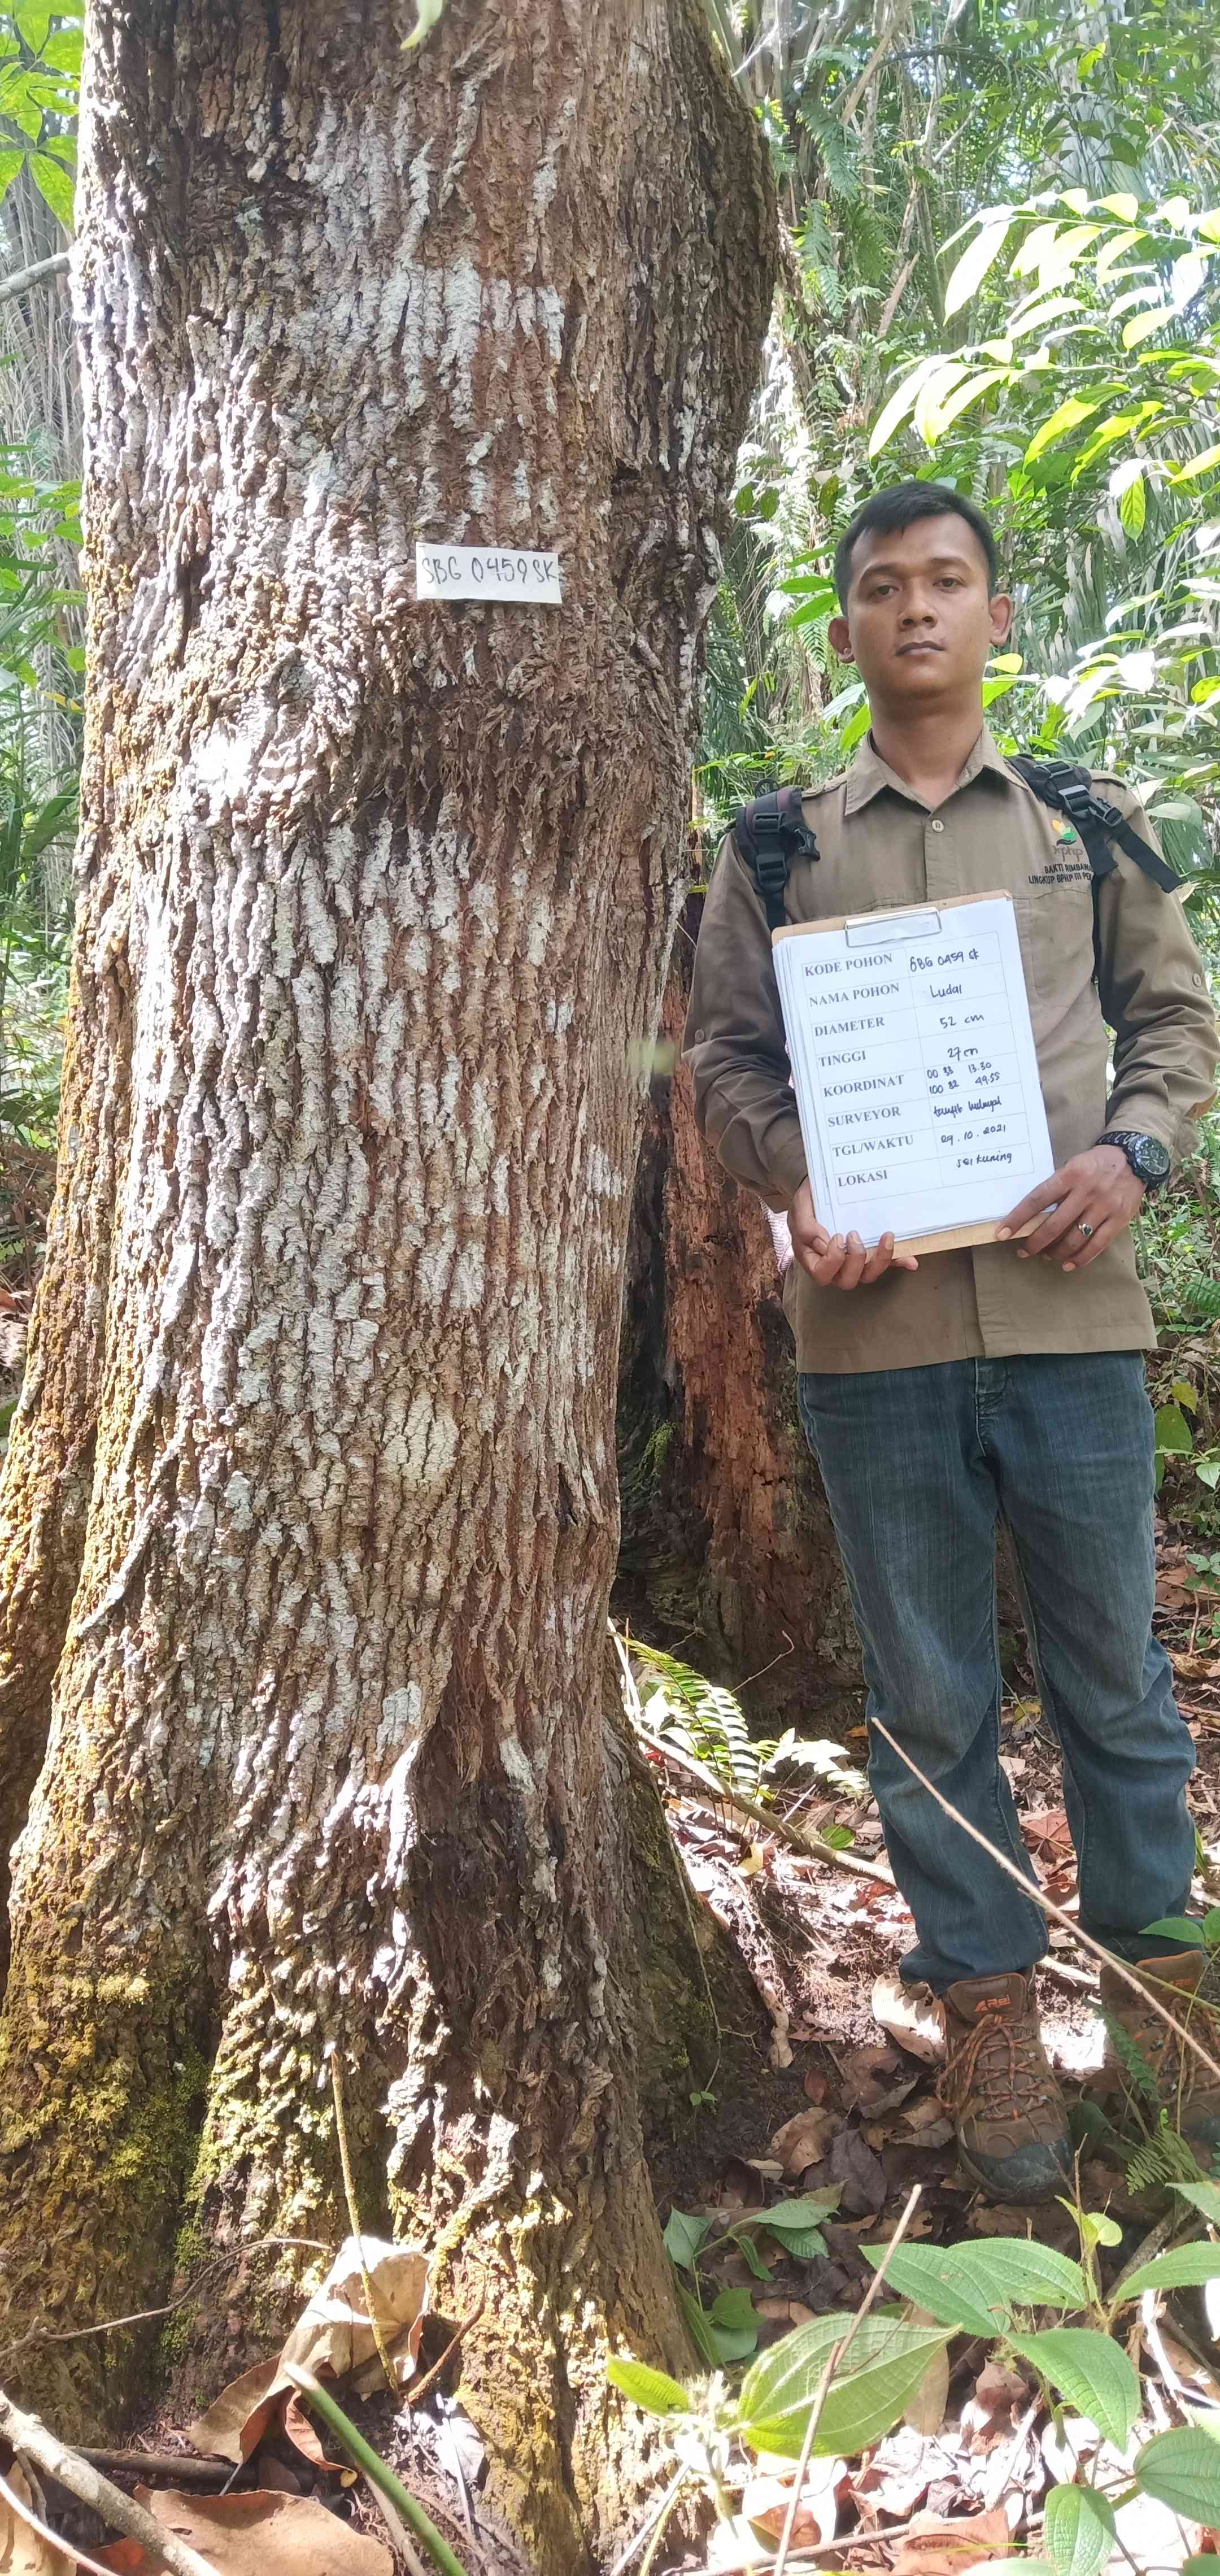 SBG 0459 SK
BAKTI RIMBAWAN
LINGKUP BPHP III PEK
KODE POHON SBG 0459 SK
NAMA POHON Ludai
DIAMETER 52 cm
TINGGI 27 cm
KOORDINAT 00 33 13.30
100 32 49.55
SURVEYOR taufik hidayat
TGL/WAKTU 29.10.2021
LOKASI sei kuning
AREI